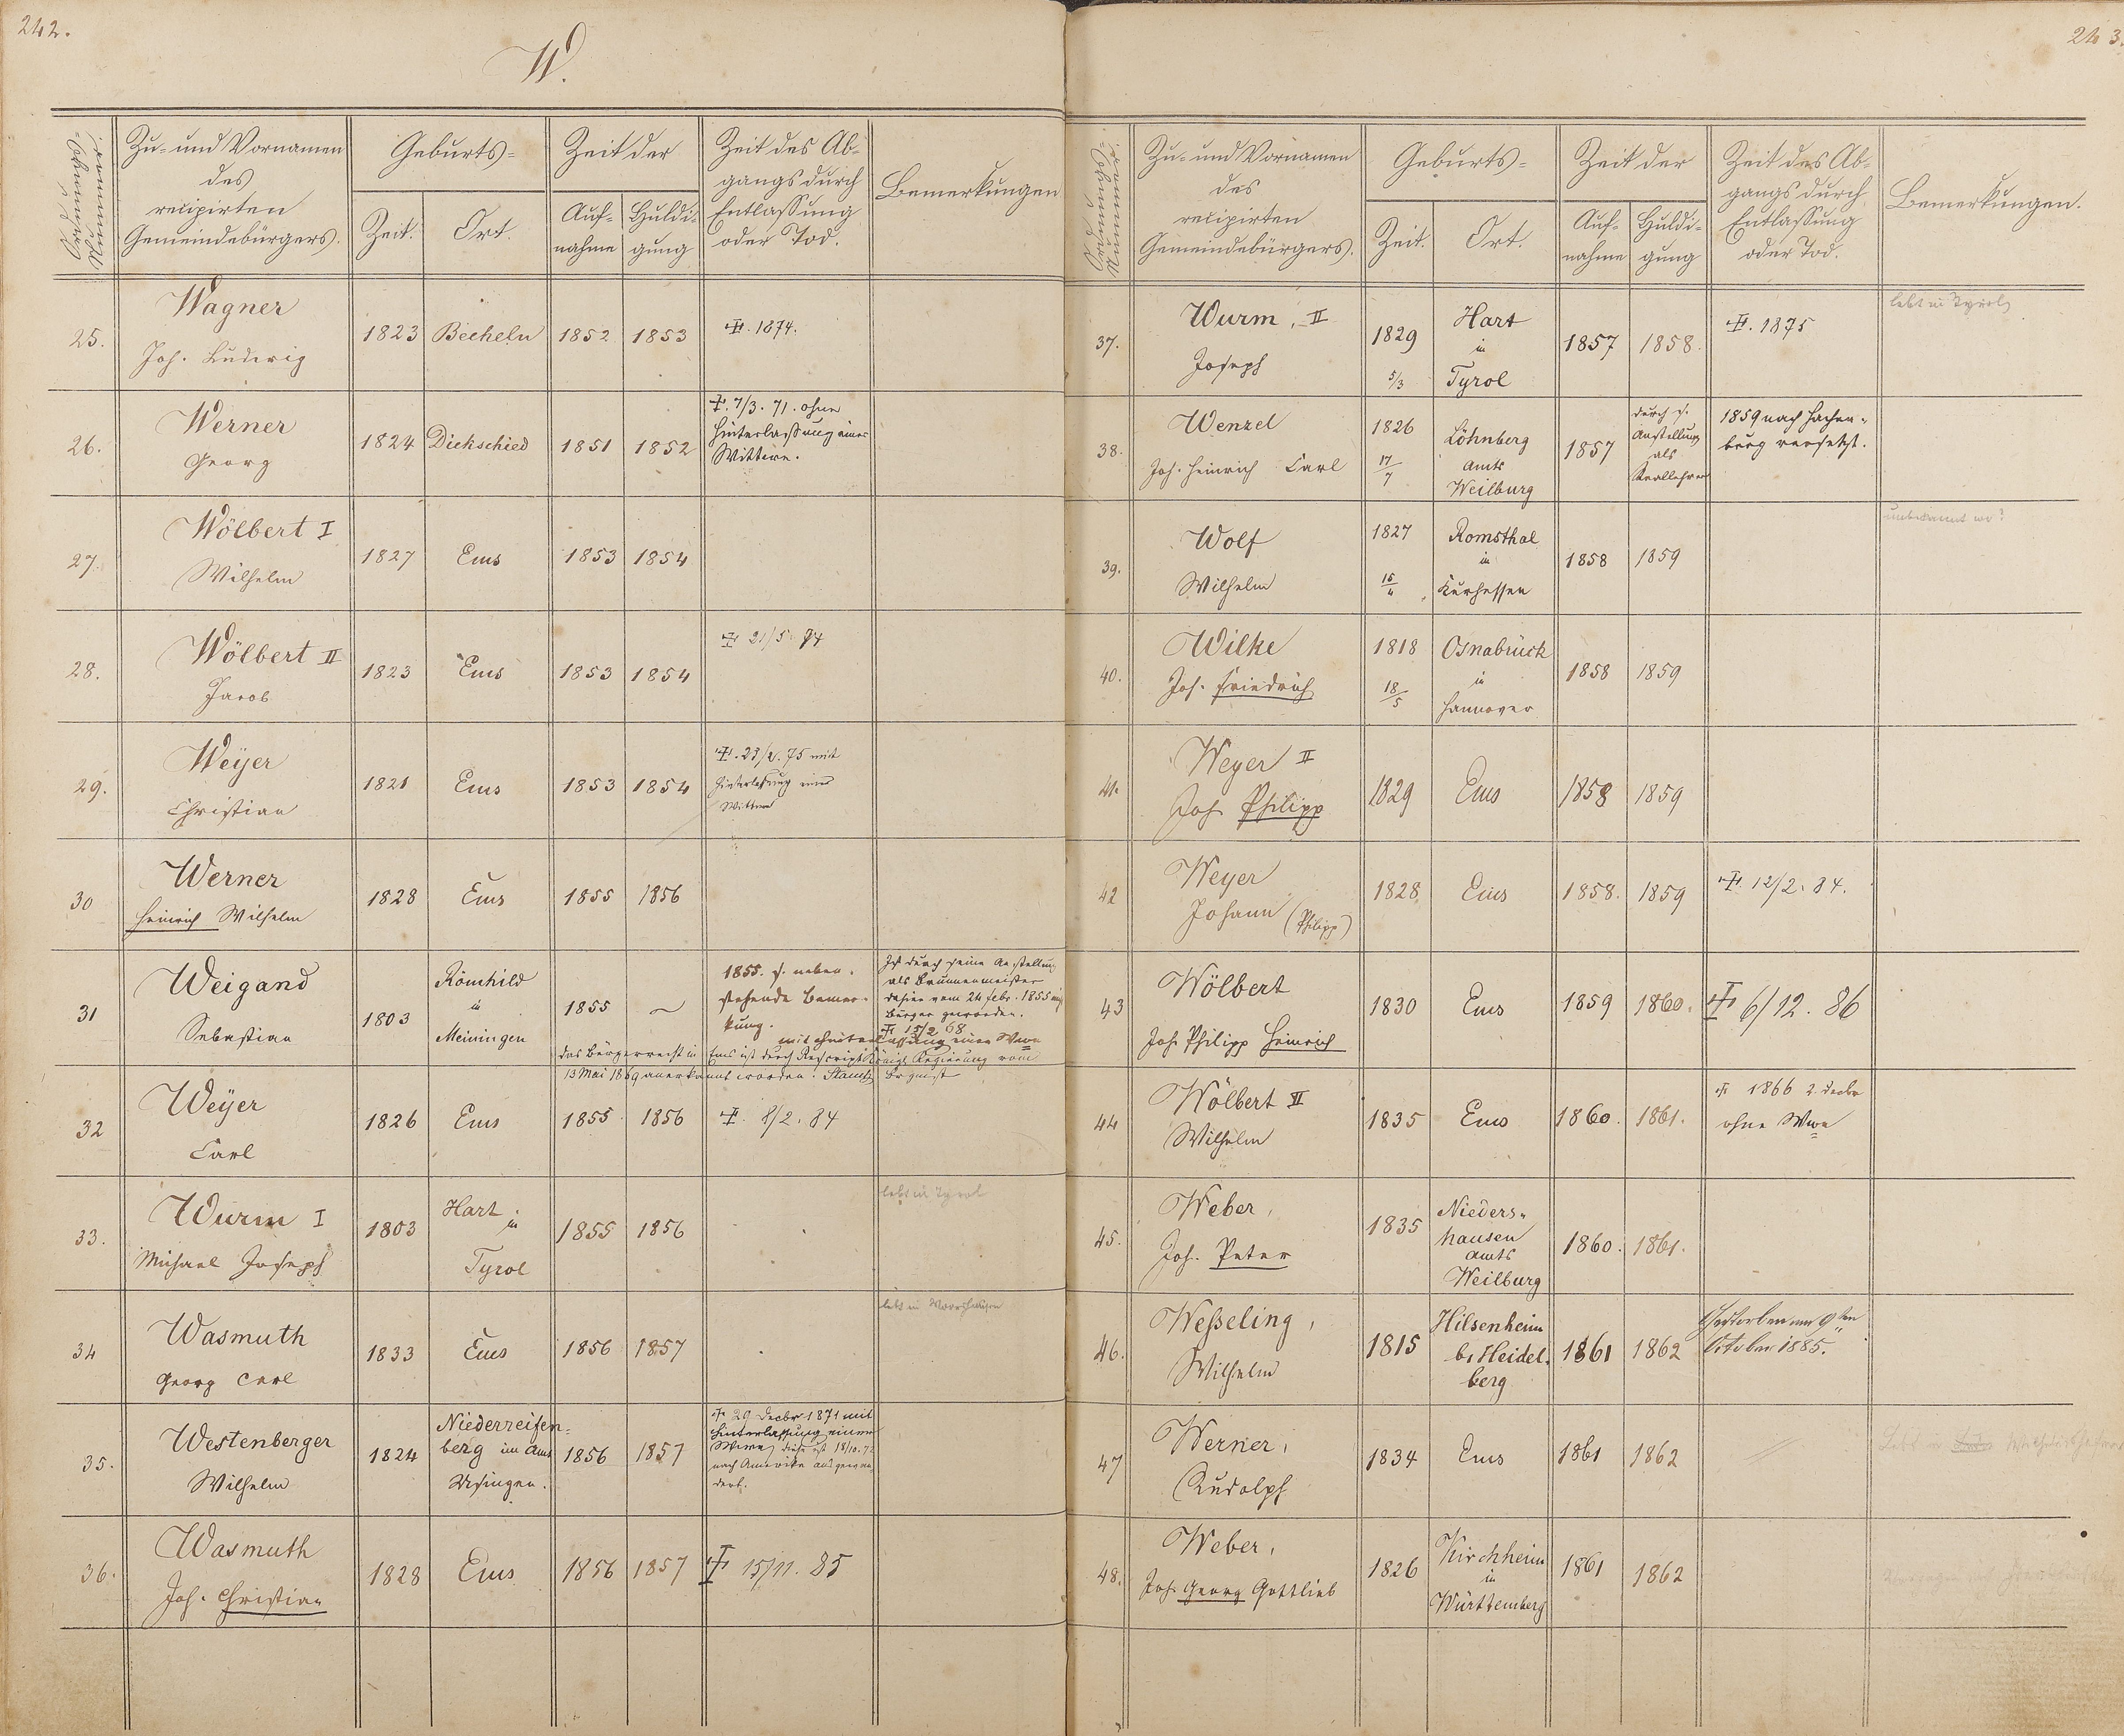 242.
W.
Ordnungs-
nummer.
Zu- und Vornamen
des
recipirten
Gemeindebürgers.
Geburts-
Zeit.
Ort.
Zeit der
Auf-
nahme
Huldi-
gung
Zeit des Ab-
gangs durch
Entlassung
oder Tod.
Bemerkungen
25.
Wagner
Joh. Ludwig
1823
Becheln
1852
1853
1874.
26.
Werner
Georg
1824
Dickschied
1851
1852
7/3. 71. ohne
Hinterlassung einer
Wittwe.
27.
Wölbert I
Wilhelm
1827
Ems
1853
1854
28.
Wölbert II
Jacob
1823
Ems
1853
1854
21/5 74
29.
Weÿer
Christian
1821
Ems
1853
1854
75 mit
Hinterlassung einer
Wittwe
30
Werner
Heinrich Wilhelm
1828
Ems
1855
1856
31
Weigand
Sebastian
1803
Römhild
in
Meiningen
1855
~
1855. s. neben-
stehende Bemer-
kung.
Ist durch seine Anstellung
als Brunnenmeister
dahier vom 24 Febr. 1855
Bürger geworden.
15/2 68
mit Hinterlassung einer Wwe
das Bürgerrecht in Ems ist durch Rescript Königl. Regierung vom
13 Mai 1869 anerkannt worden.
32
Weÿer
Carl
1826
Ems
1855
1856
8/2. 84
33.
Wurm I
Michael Joseph
1803
Hart
in
Tyrol
1855
1856
lebt in Tyrol
34
Wasmuth
Georg Carl
1833
Ems
1856
1857
lebt in
35.
Westenberger
Wilhelm
1824
Niederreifen-
berg im Amt
Usingen.
1856
1857
29 Decbr 1871 mit
Hinterlassung einer
Wwe, diese ist 18/10. 7
nach Amerika ausgewan-
dert.
36.
Wasmuth
Joh. Christian
1828
Ems
1856
1857
15/11. 85
243.
Ordnungs-
Nummer.
Zu- und Vornamen
des
recipirten
Gemeindebürgers.
Geburts-
Zeit.
Ort.
Zeit der
Auf-
nahme
Huldi-
gung
Zeit des Ab-
gangs durch
Entlassung
oder Tod.
Bemerkungen.
37.
Wurm, II
Joseph
1829
5/3
Hart
in
Tyrol
1857
1858.
1875
lebt in Tyrol
38.
Wenzel
Joh. Heinrich Carl
1826
17/7
Löhnberg
Amts
Weilburg
1857
durch s.
Anstellung
als
Reallehrer
1859 nach Hachen-
burg versetzt.
39.
Wolf
Wilhelm
1827
Romsthal
in
Kurhessen
1858
1859
unbekannt wo?
40.
Wilke
Joh. Friedrich
1818
18/5
Osnabrück
in
Hannover
1858
1859
41.
Weyer II
Joh Philipp
1829
Ems
1858
1859
42
Weyer
Johann (Philipp)
1828
Ems
1858.
1859
12/2. 84.
43
Wölbert
Joh Philipp Heinrich
1830
Ems
1859
1860.
6/12. 86
44
Wölbert III
Wilhelm
1835
Ems
1860.
1861.
1866 2. Decbr
ohne Wwe
45.
Weber,
Joh. Peter
1835
Nieders-
hausen
Amts
Weilburg
1860.
1861.
46.
Weßeling,
Wilhelm
1815
Hilsenheim
b. Heidel-
berg
1861
1862
Gestorben am 9ten
October 1885.
47
Werner,
Rudolph
1834
Ems
1861
1862
48.
Weber,
Joh. Georg Gottlieb
1826
Kirchheim
in
Württemberg
1861
1862